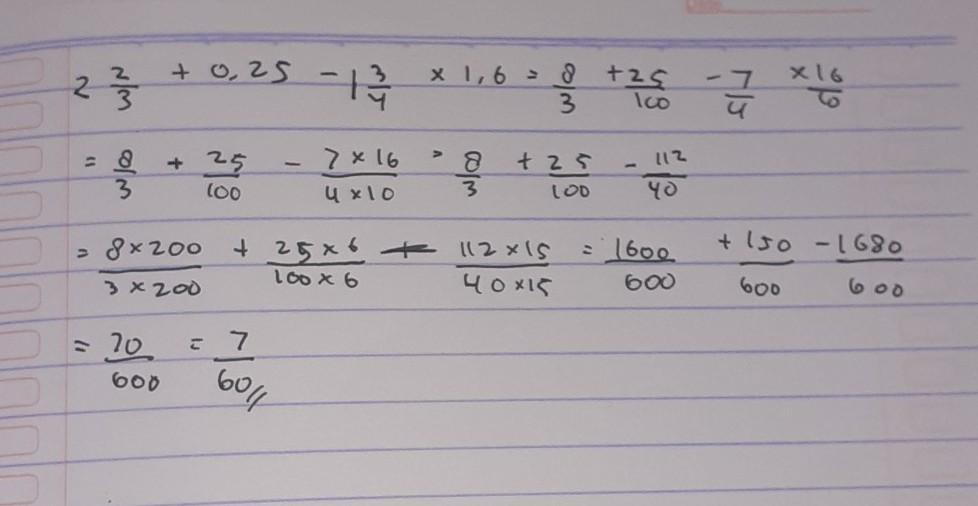 2 2/3 + 0,25 - 1 3/4 × 1,6 = 8/3 + 25/100 - 7/4 × 16/10
= 8/3 + 25/100 - 7×16/4×10 = 8/3 + 25/100 - 112/40
= 8×200/3×200 + 25×6/100×6 - 112×15/40×15 = 1600/600 + 150/600 - 1680/600
= 70/600 = 7/60//